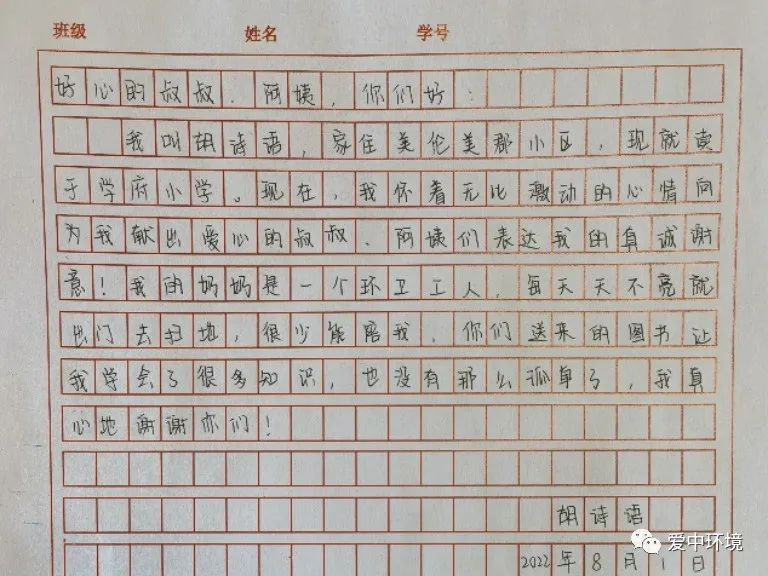 班级 姓名 学号
好心的叔叔、阿姨，你们好：
我叫胡诗语，家住美伦美郡小区，现就读
于学府小学。现在，我怀着无比激动的心情向
为我献出爱心的叔叔、阿姨们表达我的真诚谢
意！我的奶奶是一个环卫工人，每天天不亮就
出门去扫地，很少能陪我，你们送来的图书让
我学会了很多知识，也没有那么孤单了，我真
心地谢谢你们！
胡诗语
2022年8月1日
爱中环境